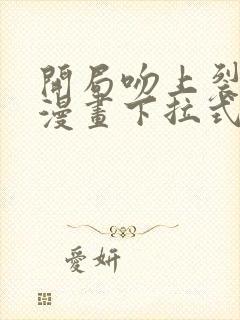 開局吻上裂
漫畫下拉式
愛妍